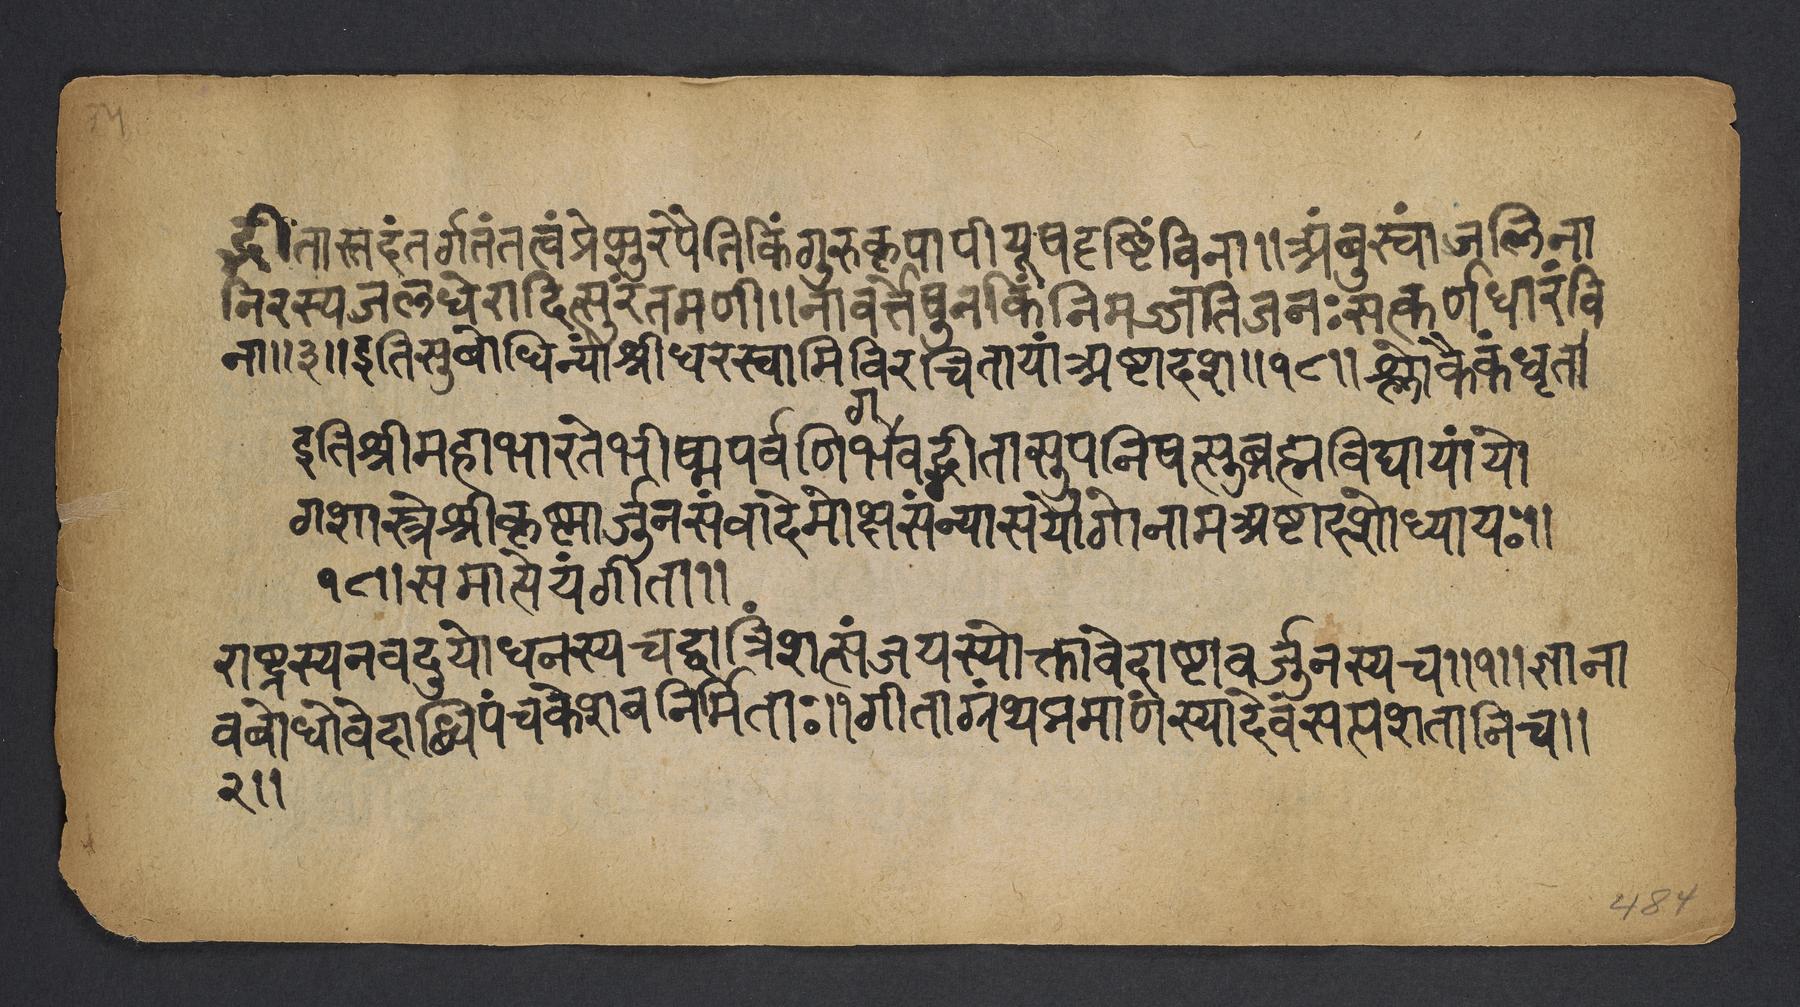 द्गीतास्तदंतर्गतंतत्वंप्रेप्सुरुपैतिकिंगुरुकृपापीयूषदृष्टिंविना॥अंबुस्वांजलिना
निरस्यजलधेरादित्सुरंतमणी॥नावर्त्तेषुनकिंनिमज्जतिजनःसत्कर्णधारंवि
ना॥३॥इतिसुबोधिन्यांश्रीधरस्वामिविरचितायांअष्टादश॥१८॥श्लोकैकंधृता
ग
इतिश्रीमहाभारतेभीष्मपर्वणिभवद्गीतासुपनिषत्सुब्रह्मविद्यायांयो
गशास्त्रेश्रीकृष्णार्जुनसंवादेमोक्षसंन्यासयोगोनामअष्टादशोध्यायः॥
१८।समाप्तेयंगीता॥
राष्ट्रस्यनवदुर्योधनस्यचद्वात्रिंशत्संजयस्योक्तावेदाष्टावर्जुनस्यच॥१॥ज्ञाना
वबोधोवेदाब्धिपंचकेशवनिर्मिताः॥गीताग्रंथप्रमाणंस्यादेवंसप्तशतानिच॥
२॥
484